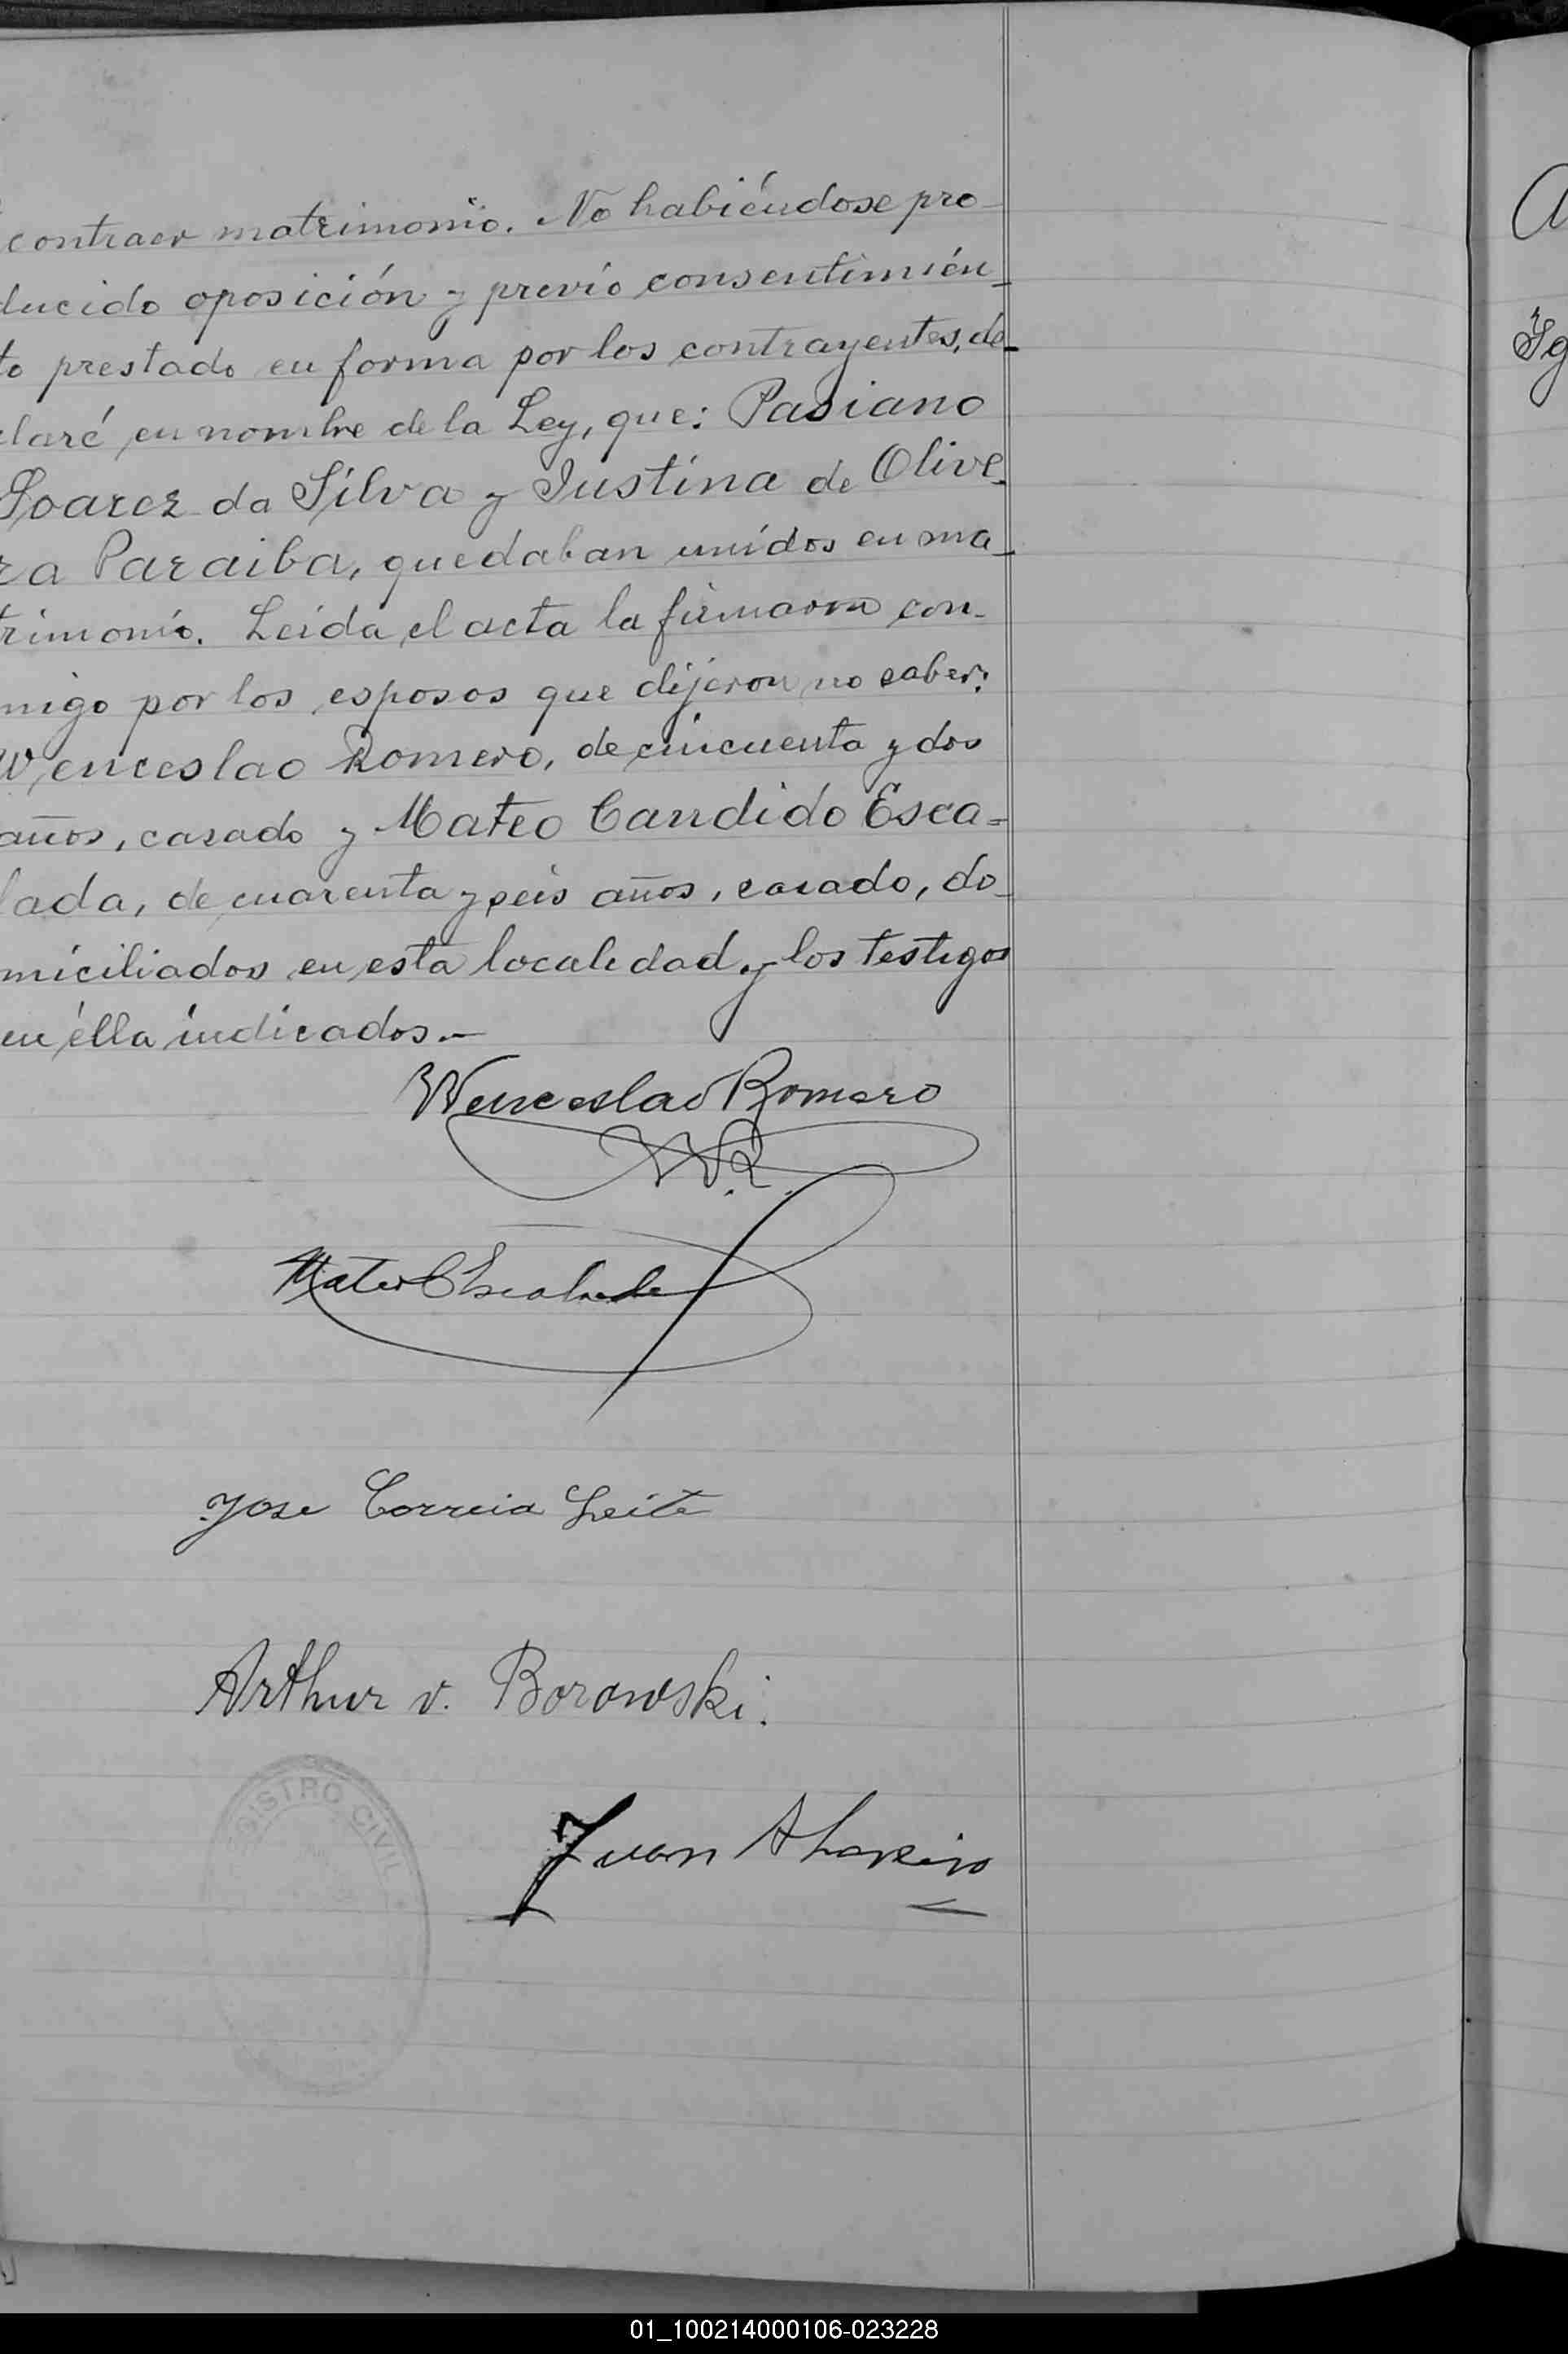 contraer matrimonio. No habiéndose pro-
ducido oposición y previo consentimien-
to prestado en forma por los contrayentes, de-
claré en nombre de la Ley, que: Pasiano
Soarez da Silva y Justina de Olive-
ra Paraiba, quedaban unidos en ma-
trimonio. Leida el acta la firmaron con-
migo por los esposos que dijeron no saber:
Wenceslao Romero, de cincuenta y dos
años, casado y Mateo Candido Esca=
lada, de cuarenta y seis años, casado, do-
miciliados en esta localidad y los testigos
en élla indicados.—
Wenceslao Romero
W.R.
Mateo C Escalada
Jose Correia Leite
Arthur v. Borowski.
REGISTRO CIVIL
Juan A
A
Ig
01_100214000106-023228